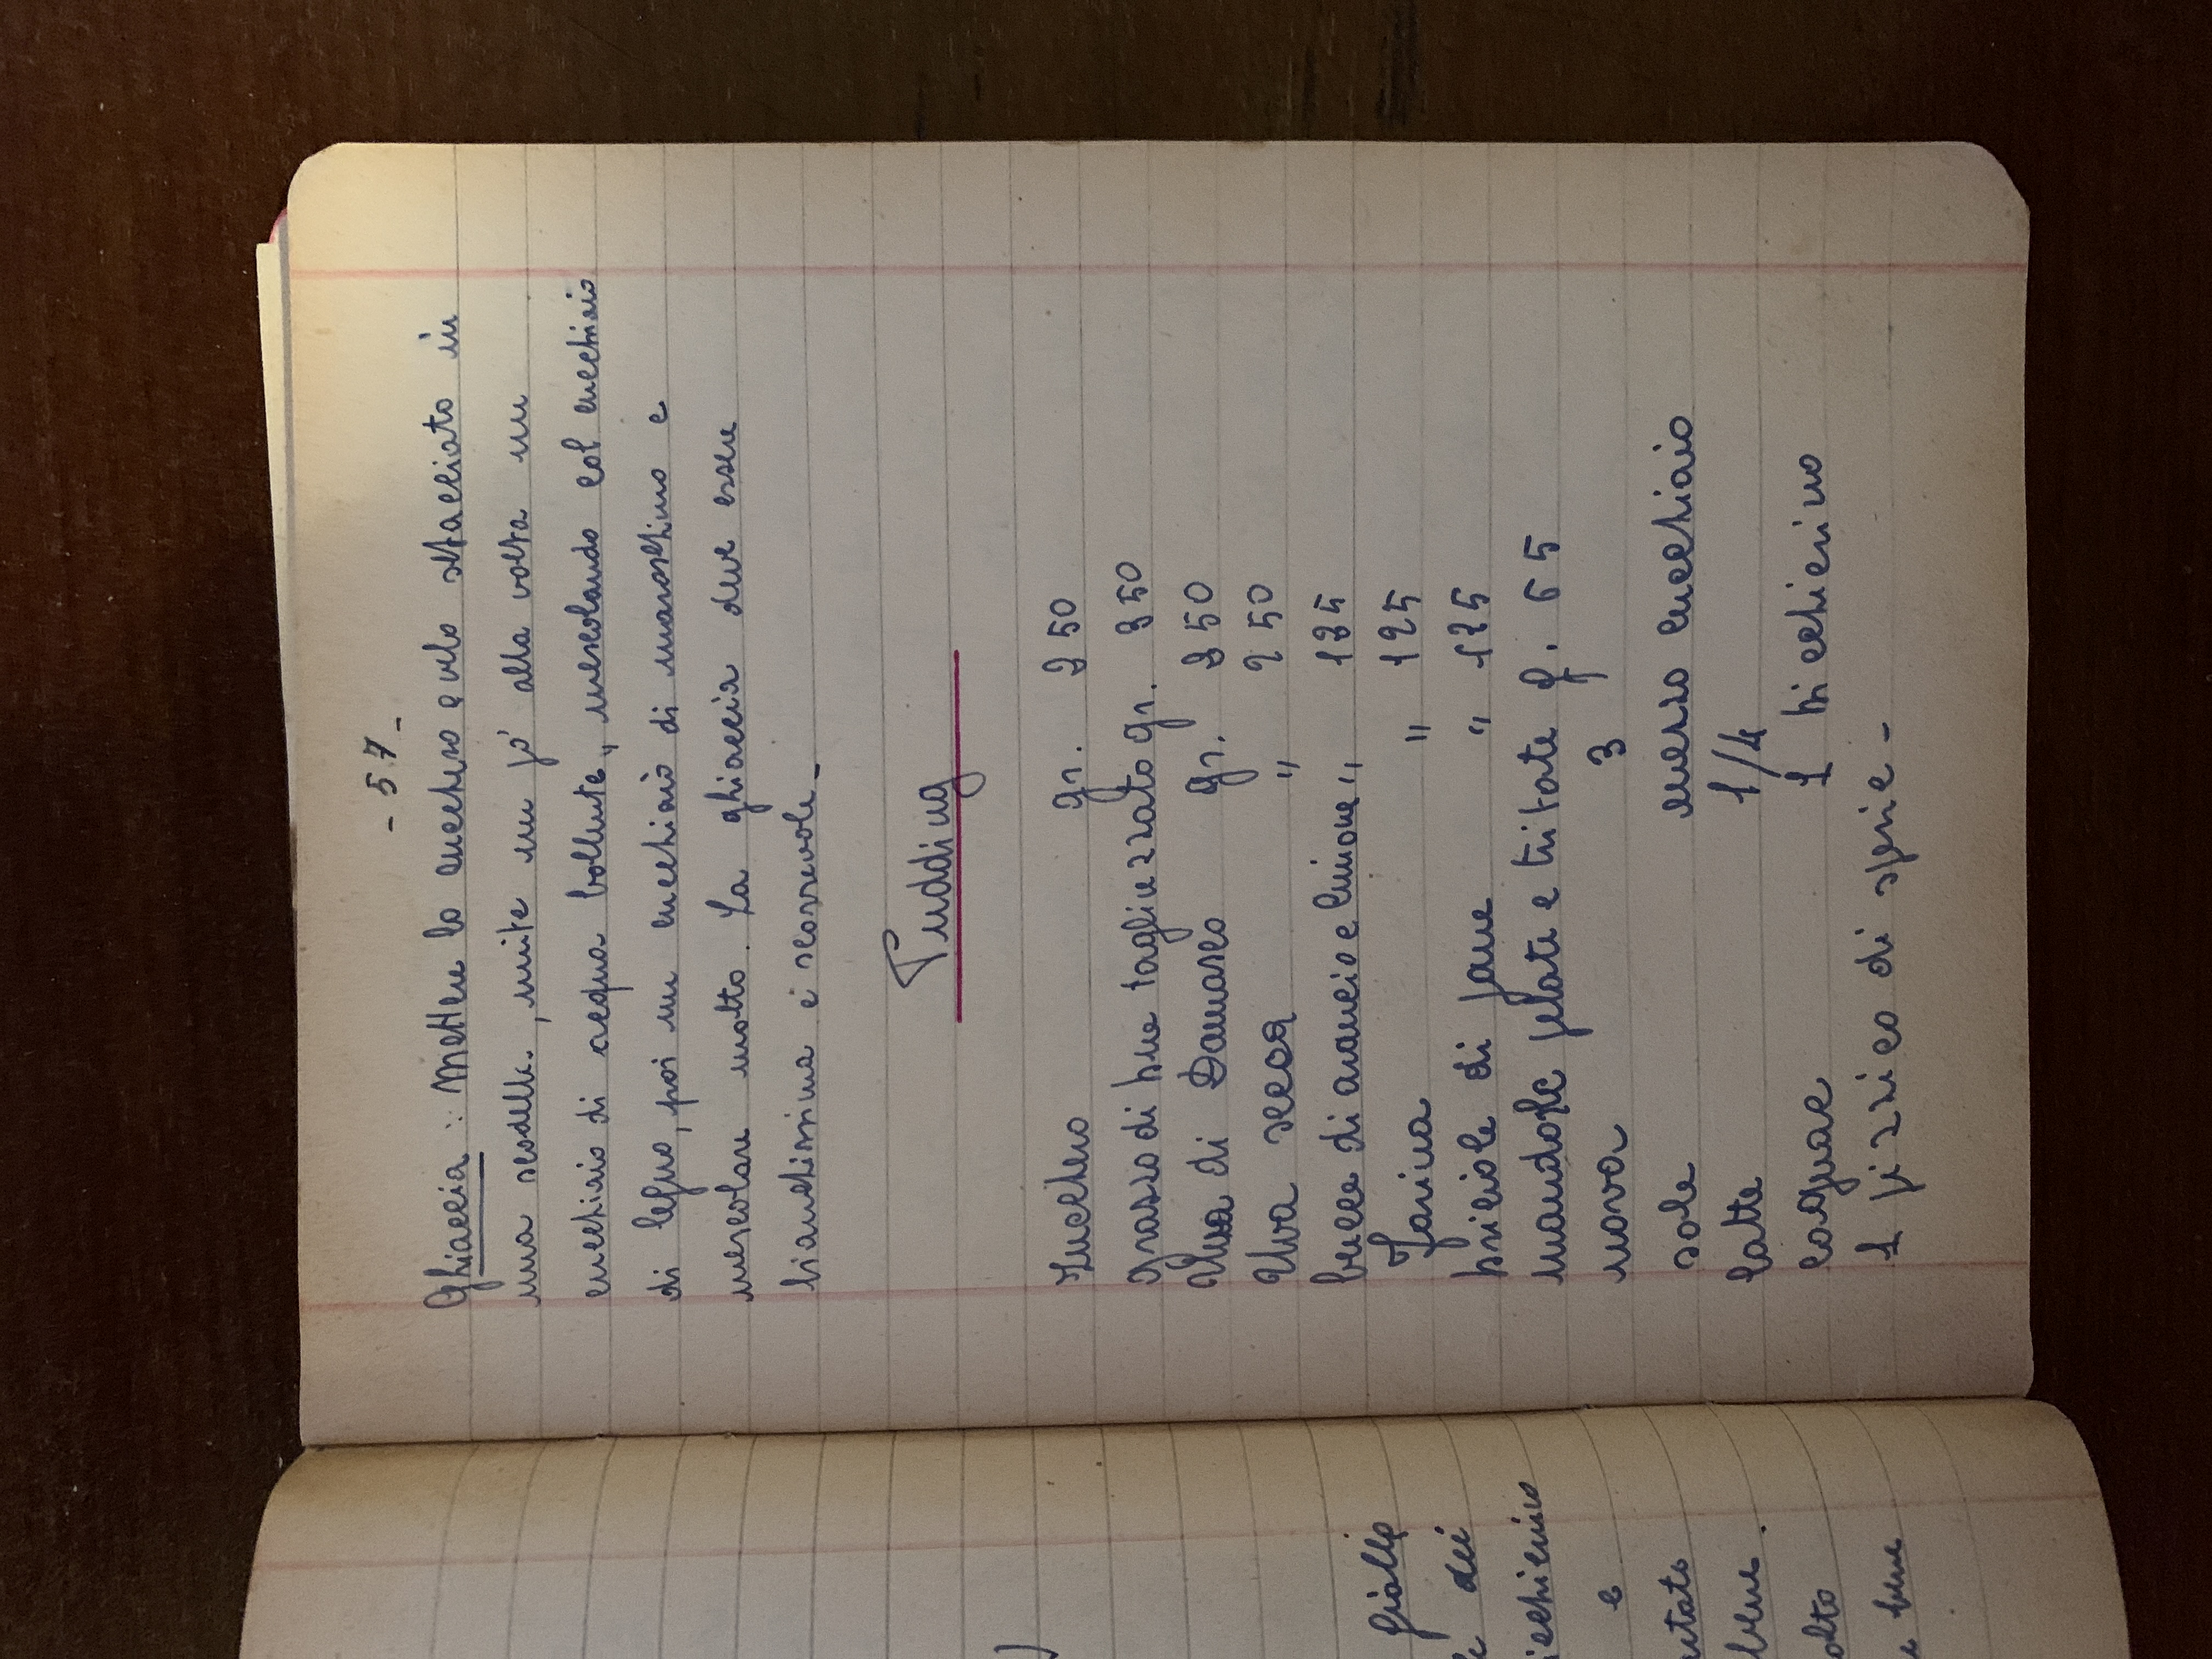 - 57 -
Ghiaccia : Mettere lo zucchero a velo setacciato in
una scodella, unite un po' alla volta un
cucchiaio di acqua bollente, mescolando col cucchiaio
di legno, poi un cucchiaio di maraschino e
mescolare molto. La ghiaccia deve essere
bianchissima e scorrevole -
Pudding
Zucchero gr. 250
grasso di bue tagliuzzato gr. 250
Uva di Damasco gr. 250
Uva secca " 250
bucce di arancio e limone " 125
Farina " 125
briciole di pane " 125
mandorle pelate e tritate g. 65
uova 3
sale mezzo cucchiaio
latte 1/4
cognac 1 bicchierino
1 pizzico di spezie -
)
gialle
dei
e
bene.
bene